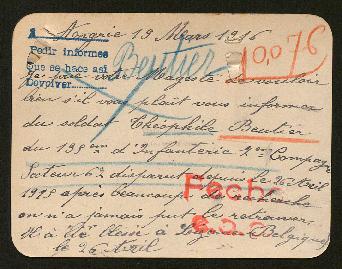 Nozarie 19 Mars 1916
1
Pedir informes
que se hace así
Devolver
Beutier
10,076
Je prie votre Magesté de vouloir
bien s'il vous plaît vous informer
du soldat Théophile Beutier
du 158em d'Infanterie 2em Compagnie
Secteur disparut depuis le 26 Avril
1915 après beaucoup de recherche
on n'a jamais put le retrouver
Il a été blessé à Belgique
le 26 Avril
Fecha